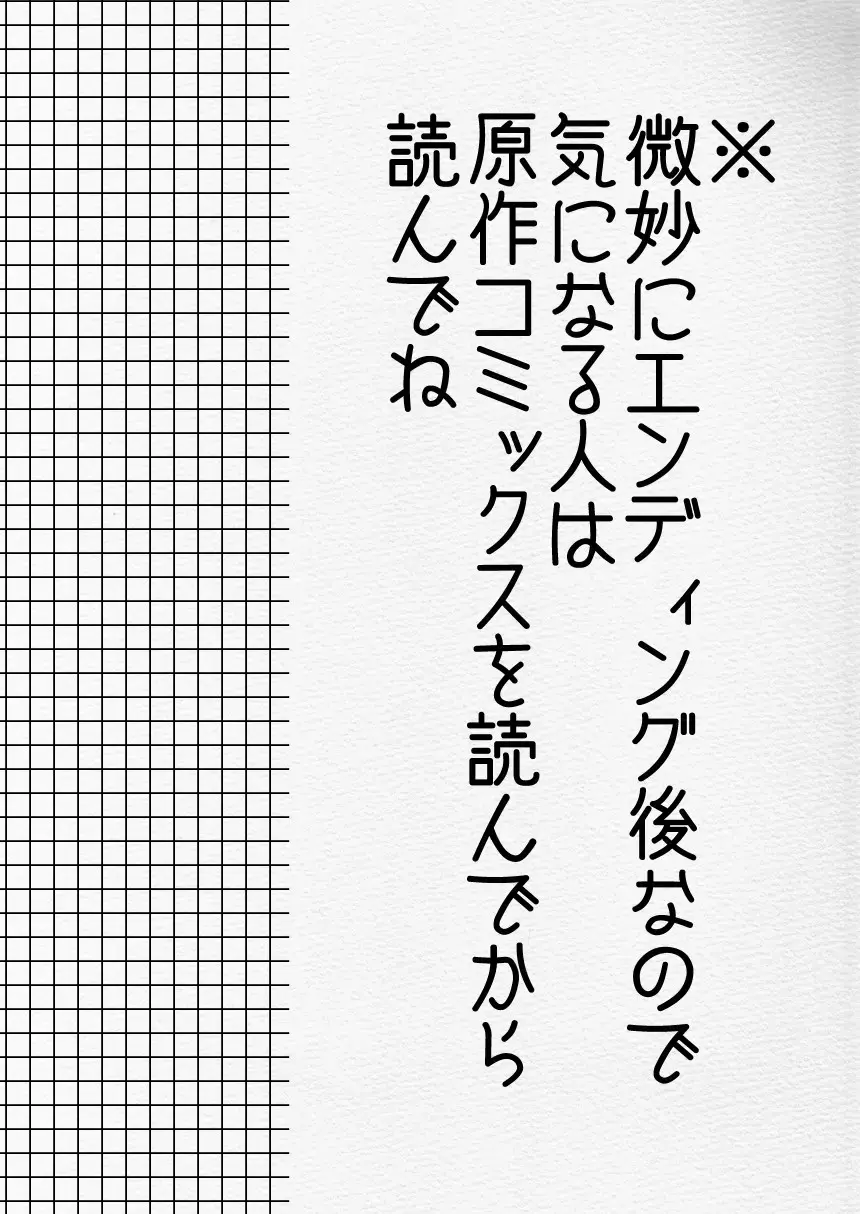 ※
微妙にエンディング後なので
気になる人は
原作コミックスを読んでから
読んでね